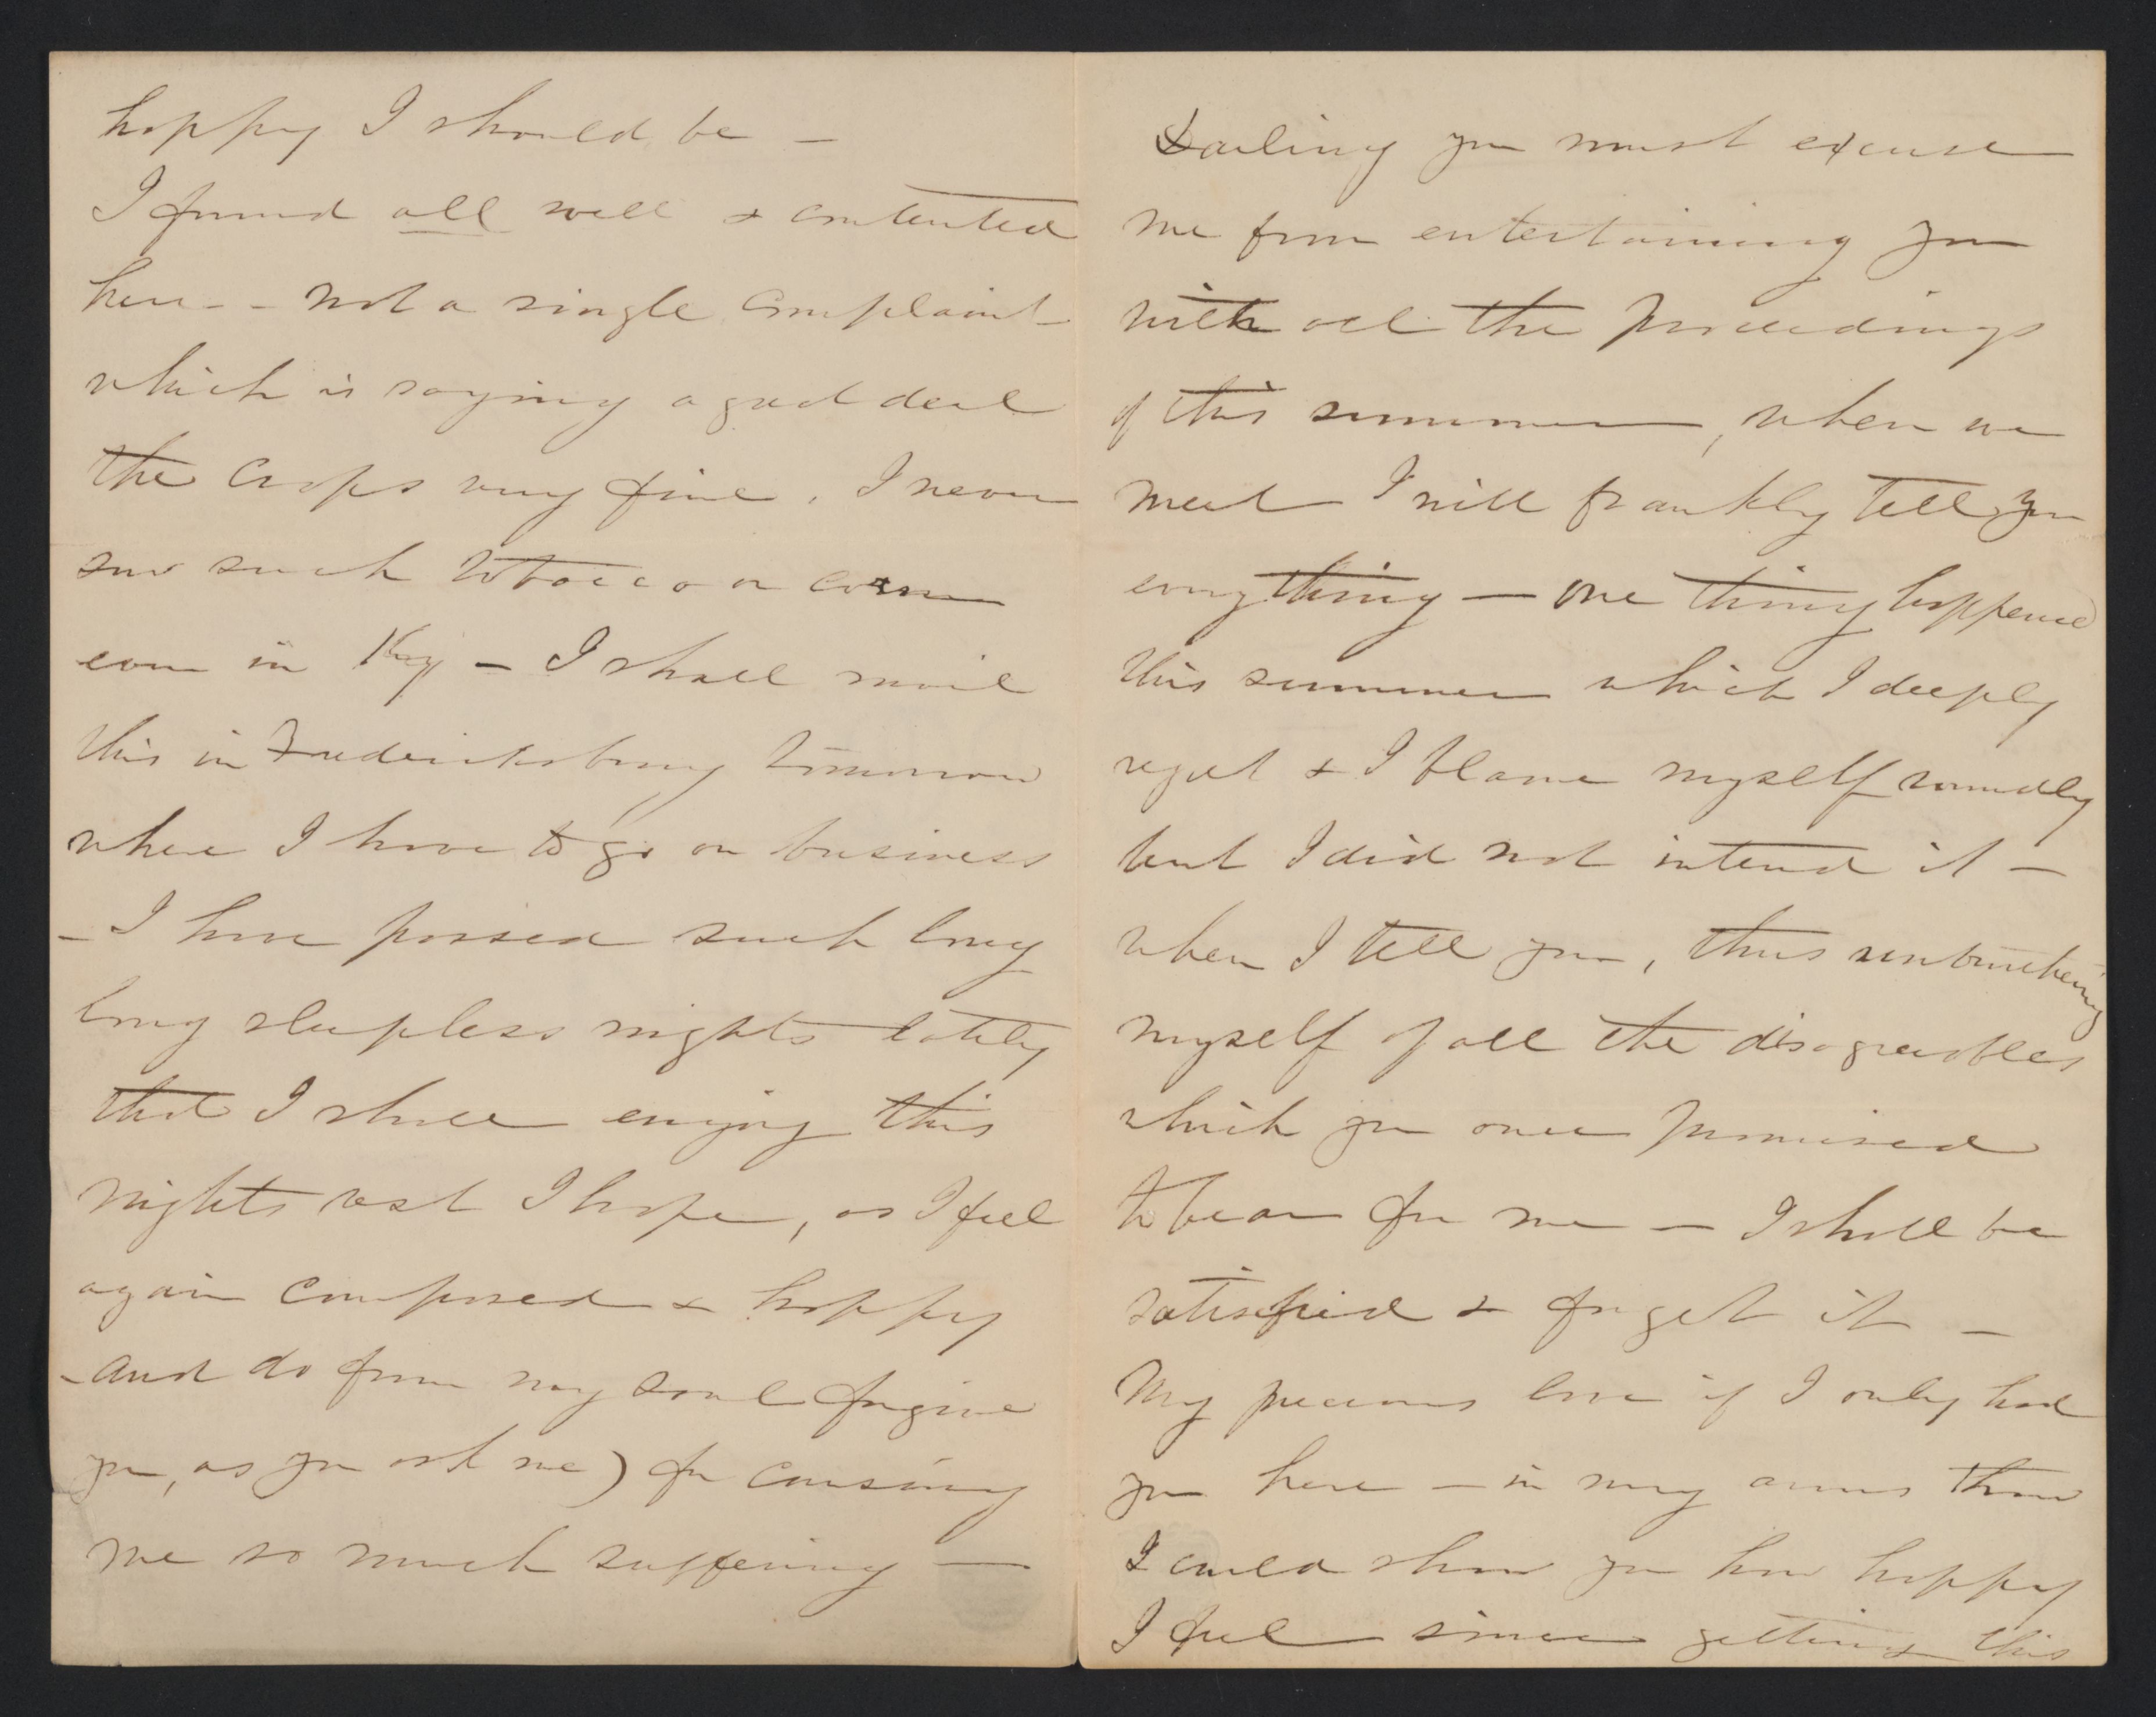 happy I should be —
I found all well & contented
here - - not a single complaint
which is saying a good deal
the crops very fine, I never
saw such tobacco or corn
even in Ky — I shall mail
this in Fredericksburg tomorrow
where I have to go on business
— I have passed such long
long sleepless nights lately
that I shall enjoy this
nights rest I hope, as I feel
again composed & happy
- and do from my soul forgive
you, as you ask me) for causing
me so much suffering —
Darling you must excuse
me from entertaining you
with all the proceedings
of this summer, when we
meet I will frankly tell you
everything — one thing happened
this summer which I deeply
regret & I blame myself soundly
but I did not intend it —
when I tell you, thus unburthening
myself of all the disagreables
which you once promised
to bear for me — I shall be
satisfied & forget it —
My precious love if I only had
you here — in my arms then
I could show you how happy
I feel since getting this